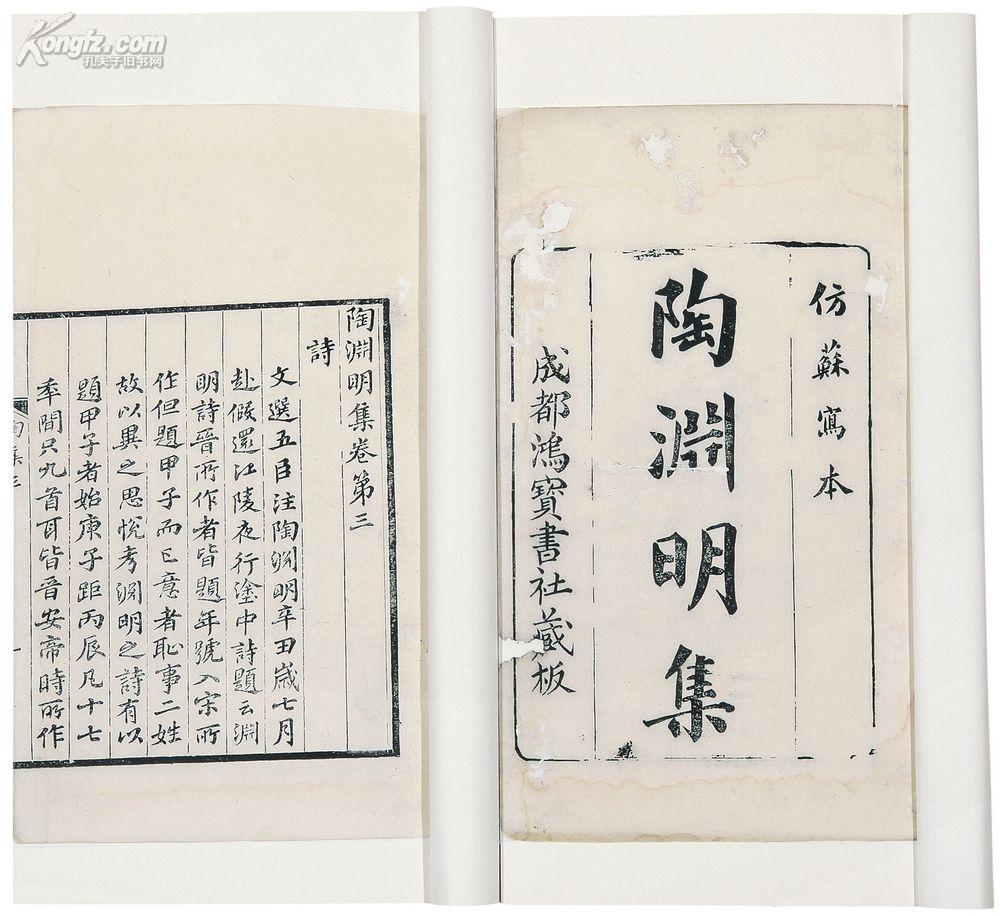 Kongfz.com
孔夫子旧书网
仿蘇寫本
陶淵明集
成都鴻寶書社藏板
陶淵明集卷第三
詩
文選五臣注陶淵明辛丑歲七月
赴假還江陵夜行塗中詩題云淵
明詩晉所作者皆題年號入宋所
作但題甲子而已意者恥事二姓
故以異之思悅考淵明之詩有以
題甲子者始庚子距丙辰凡十七
年間只九首耳皆晉安帝時所作
陶集三
一